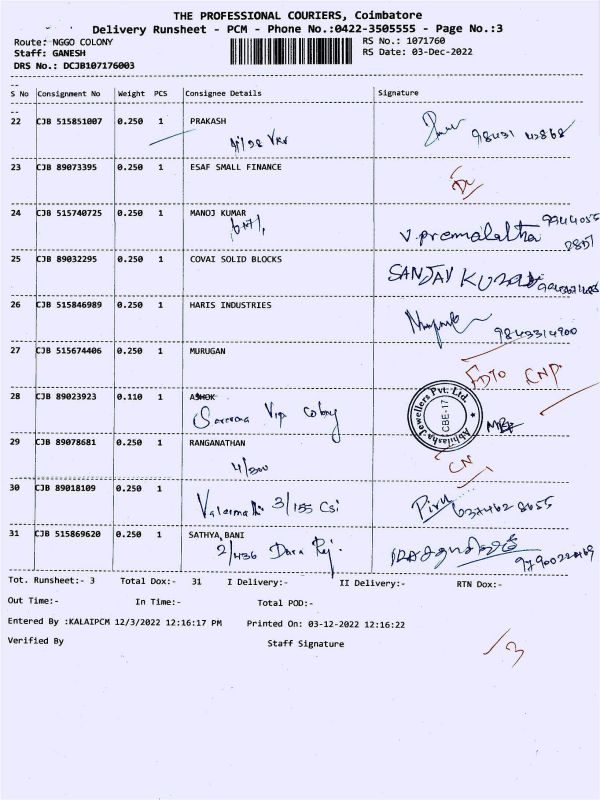 THE PROFESSIONAL COURIERS, Coimbatore
Delivery Runsheet - PCM - Phone No.:0422-3505555 - Page No.:3
Route: NGGO COLONY RS No.: 1071760
Staff: GANESH RS Date: 03-Dec-2022
DRS No.: DCJB107176003
S No Consignment No Weight PCS Consignee Details Signature
22 CJB 515851007 0.250 1 PRAKASH
23 CJB 89073395 0.250 1 ESAF SMALL FINANCE
24 CJB 515740725 0.250 1 MANOJ KUMAR
V.premalatha
25 CJB 89032295 0.250 1 COVAI SOLID BLOCKS
SANJAY KUMAR
26 CJB 515846989 0.250 1 HARIS INDUSTRIES
9843314900
27 CJB 515674406 0.250 1 MURUGAN
28 CJB 89023923 0.110 1 ASHOK
Vip Colony
Abhilasha Jewellers Pvt. Ltd.
CBE-17
29 CJB 89078681 0.250 1 RANGANATHAN
4/300
CN
30 CJB 89018109 0.250 1
3/155 Csi
31 CJB 515869620 0.250 1 SATHYA BANI
2/436
Tot. Runsheet:- 3 Total Dox:- 31 I Delivery:- II Delivery:- RTN Dox:-
Out Time:- In Time:- Total POD:-
Entered By :KALAIPCM 12/3/2022 12:16:17 PM Printed On: 03-12-2022 12:16:22
Verified By Staff Signature
3